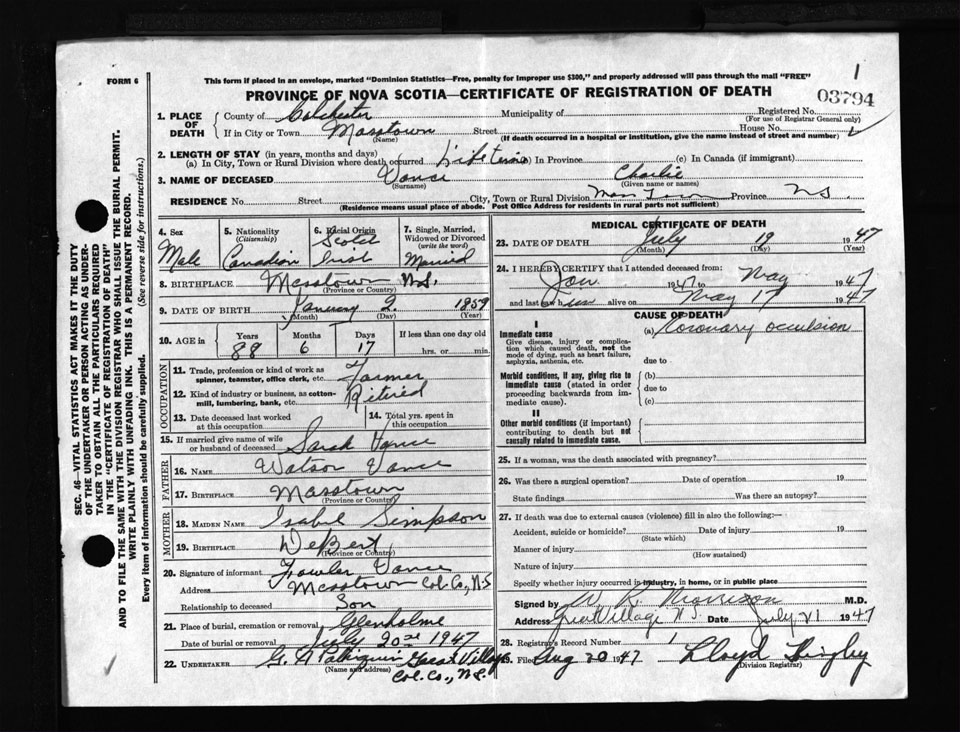 FORM 6
This form if placed in an envelope, marked "Dominion Statistics—Free, penalty for improper use $300," and properly addressed will pass through the mail "FREE"
1
PROVINCE OF NOVA SCOTIA—CERTIFICATE OF REGISTRATION OF DEATH
03794
1. PLACE OF DEATH
County of Colchester Municipality of Registered No.
(For use of Registrar General only)
If in City or Town Masstown Street House No.
(Name) (If death occurred in a hospital or institution, give the name instead of street and number)
2. LENGTH OF STAY (in years, months and days)
(a) In City, Town or Rural Division where death occurred Life time (b) In Province (c) In Canada (if immigrant)
3. NAME OF DECEASED Vance Charlie
(Surname) (Given name or names)
RESIDENCE No. Street City, Town or Rural Division Mass Town Province N.S.
(Residence means usual place of abode. Post Office Address for residents in rural parts not sufficient)
4. Sex Male
5. Nationality (Citizenship) Canadian
6. Racial Origin Scotch Irish
7. Single, Married, Widowed or Divorced (write the word) Married
8. BIRTHPLACE Masstown N.S.
(Province or Country)
9. DATE OF BIRTH January 2. 1859
(Month) (Day) (Year)
10. AGE in Years Months Days If less than one day old
88 6 17 hrs. or min.
OCCUPATION
11. Trade, profession or kind of work as spinner, teamster, office clerk, etc. Farmer
12. Kind of industry or business, as cotton-mill, lumbering, bank, etc. Retired
13. Date deceased last worked at this occupation
14. Total yrs. spent in this occupation
15. If married give name of wife or husband of deceased Sarah Vance
FATHER
16. NAME Watson Vance
17. BIRTHPLACE Masstown
(Province or Country)
MOTHER
18. MAIDEN NAME Isabel Simpson
19. BIRTHPLACE DeBert
(Province or Country)
20. Signature of informant Fowler Vance
Address Masstown Col. Co., N.S
Relationship to deceased Son
21. Place of burial, cremation or removal Glenholme
Date of burial or removal July 20 1947
22. UNDERTAKER G. Great Village
(Name and address)
Col. Co., N.S.
MEDICAL CERTIFICATE OF DEATH
23. DATE OF DEATH July 19 1947
(Month) (Day) (Year)
24. I HEREBY CERTIFY that I attended deceased from:
Jan. 1947 to May 1947
and last saw him alive on May 17 1947
CAUSE OF DEATH
I
Immediate cause
Give disease, injury or complication which caused death, not the mode of dying, such as heart failure, asphyxia, asthenia, etc.
(a) Coronary occulsion
due to
Morbid conditions, if any, giving rise to immediate cause (stated in order proceeding backwards from immediate cause).
(b)
due to
(c)
II
Other morbid conditions (if important) contributing to death but not causally related to immediate cause.
25. If a woman, was the death associated with pregnancy?
26. Was there a surgical operation? Date of operation 19
State findings Was there an autopsy?
27. If death was due to external causes (violence) fill in also the following:—
Accident, suicide or homicide? Date of injury 19
(State which)
Manner of injury
(How sustained)
Nature of injury
Specify whether injury occurred in industry, in home, or in public place
Signed by W. R. Morrison M.D.
Address Great Village N.S. Date July 21 1947
28. Registrar's Record Number 1
29. Filed Aug 20 1947 Lloyd
(Division Registrar)
SEC. 46—VITAL STATISTICS ACT MAKES IT THE DUTY
OF THE UNDERTAKER OR PERSON ACTING AS UNDER-
TAKER TO OBTAIN ALL THE PARTICULARS REQUIRED
IN THE "CERTIFICATE OF REGISTRATION OF DEATH"
AND TO FILE THE SAME WITH THE DIVISION REGISTRAR WHO SHALL ISSUE THE BURIAL PERMIT.
WRITE PLAINLY WITH UNFADING INK. THIS IS A PERMANENT RECORD.
Every item of information should be carefully supplied. (See reverse side for instructions.)